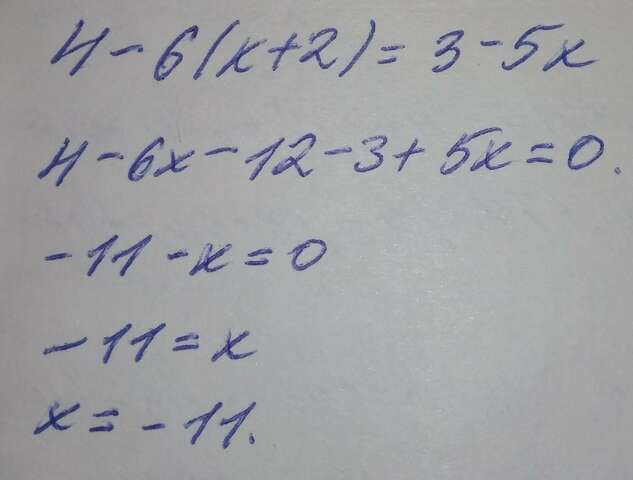 4-6(x+2)=3-5x
4-6x-12-3+5x=0.
-11-x=0
-11=x
x=-11.